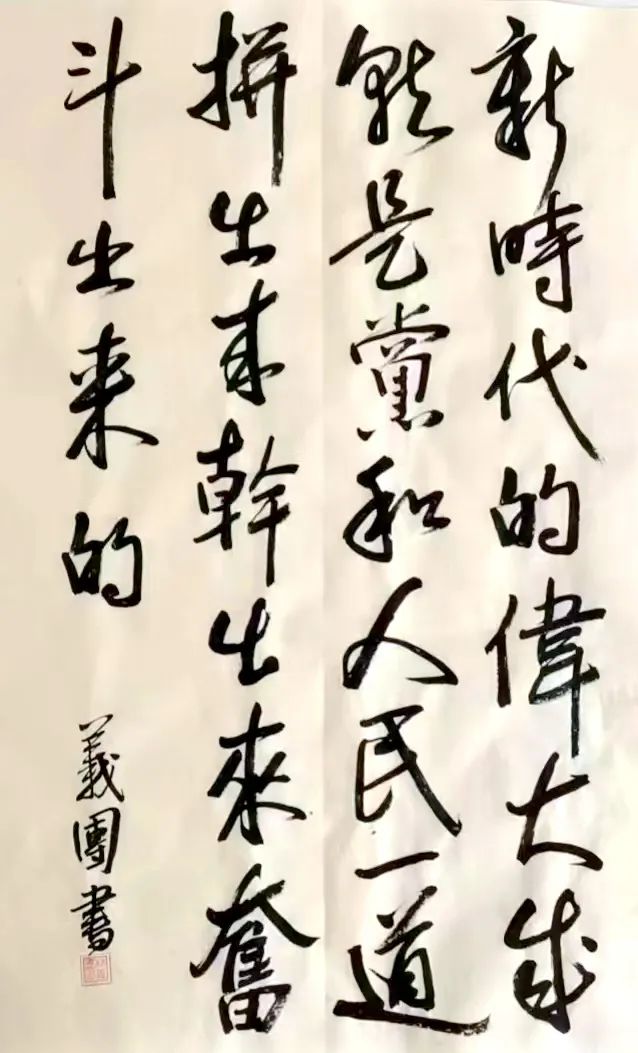 新時代的偉大成
就是黨和人民一道
拼出来幹出來奮
斗出来的
義團書